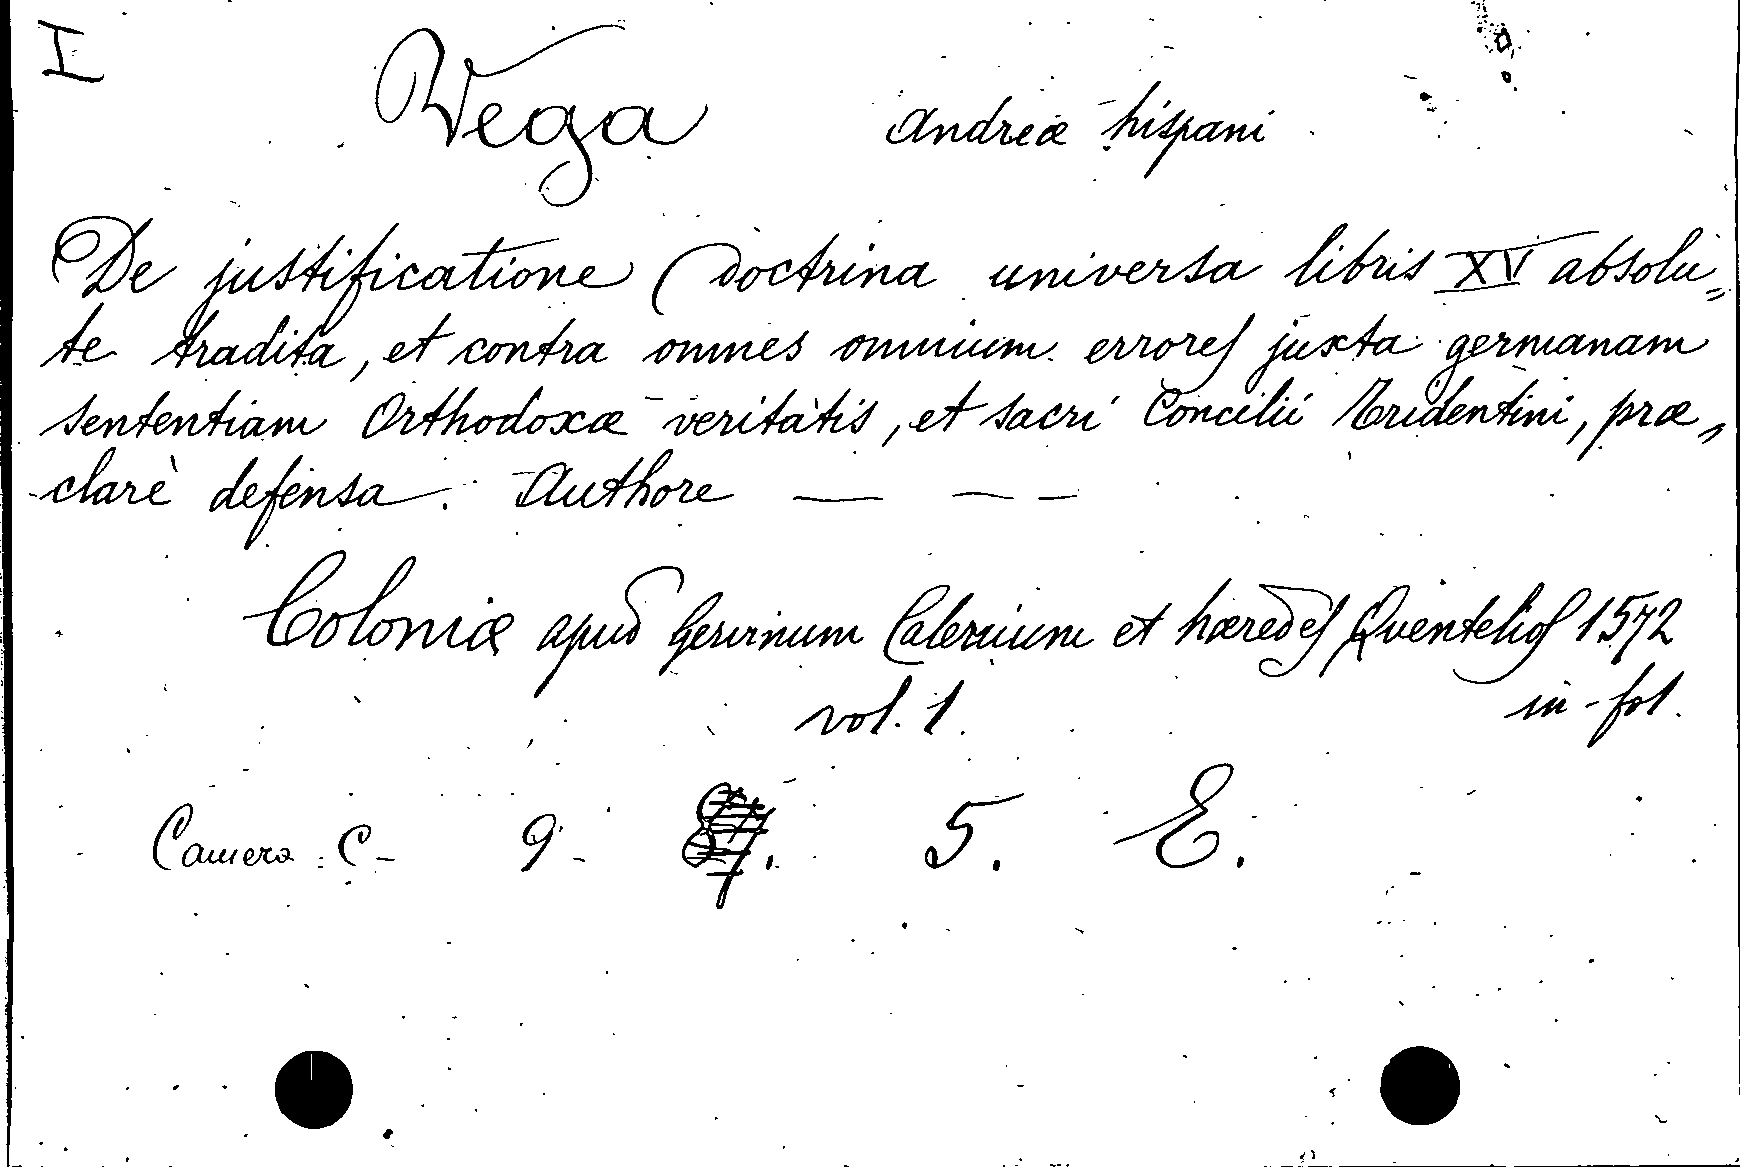 I
Vega Andreæ hispani
De justificatione doctrina universa libris XV absolu„
te tradita, et contra omnes omnium errores juxta germanam
sententiam Orthodoxæ veritatis, et sacri Concilii Tridentini, præ„
clarè defensa. Authore — — —
Coloniæ apud Gervinum Calenium et hæredes Quentelios 1572
vol. 1. in-fol.
Camera C- 9- 5. E.